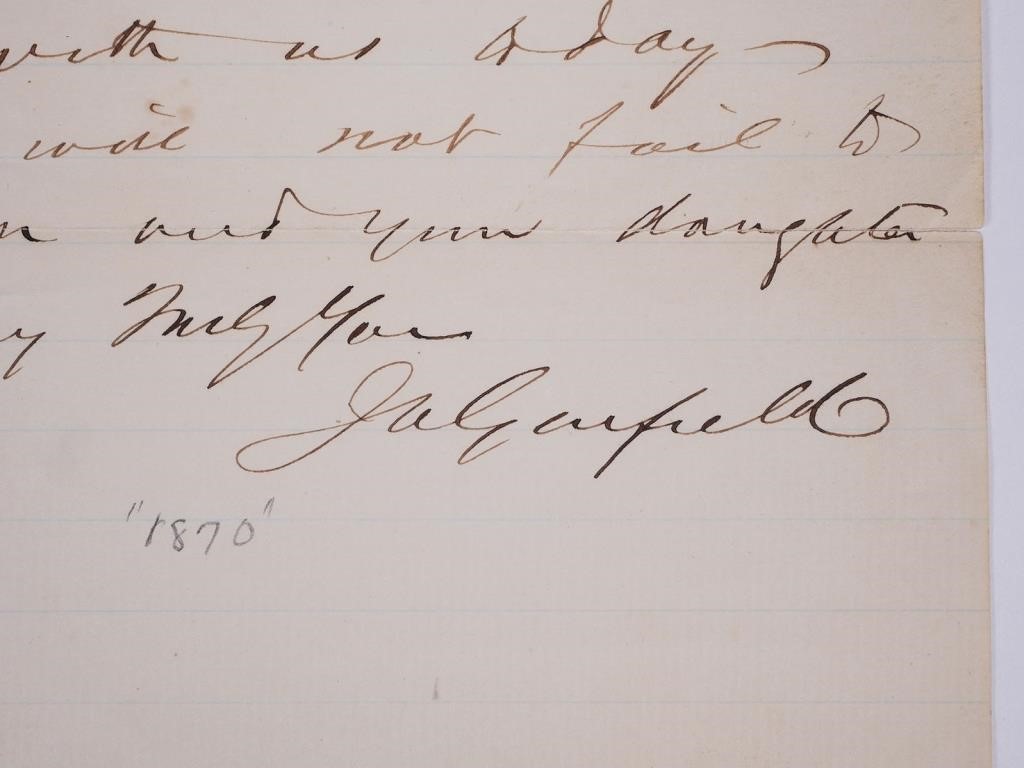 with us today
will not fail to
n and your daughter
y Truly Yours
J A Garfield
"1870"